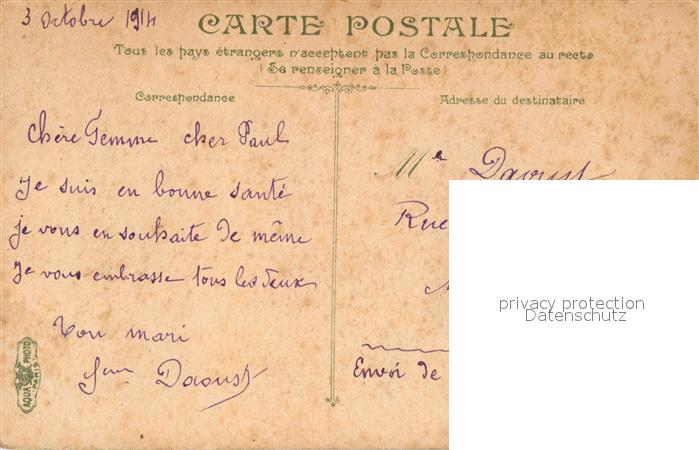 3 octobre 1914
CARTE POSTALE
Tous les pays étrangers n'acceptent pas la Correspondance au recto
(Se renseigner à la Poste)
Correspondance
Adresse du destinataire
chère Femme cher Paul
Je suis en bonne santé
je vous en souhaite de même
Je vous embrasse tous les deux
Ton mari
Daoust
Me Daoust
Rue
Envoi de
AQUA PHOTO
PARIS
privacy protection
Datenschutz